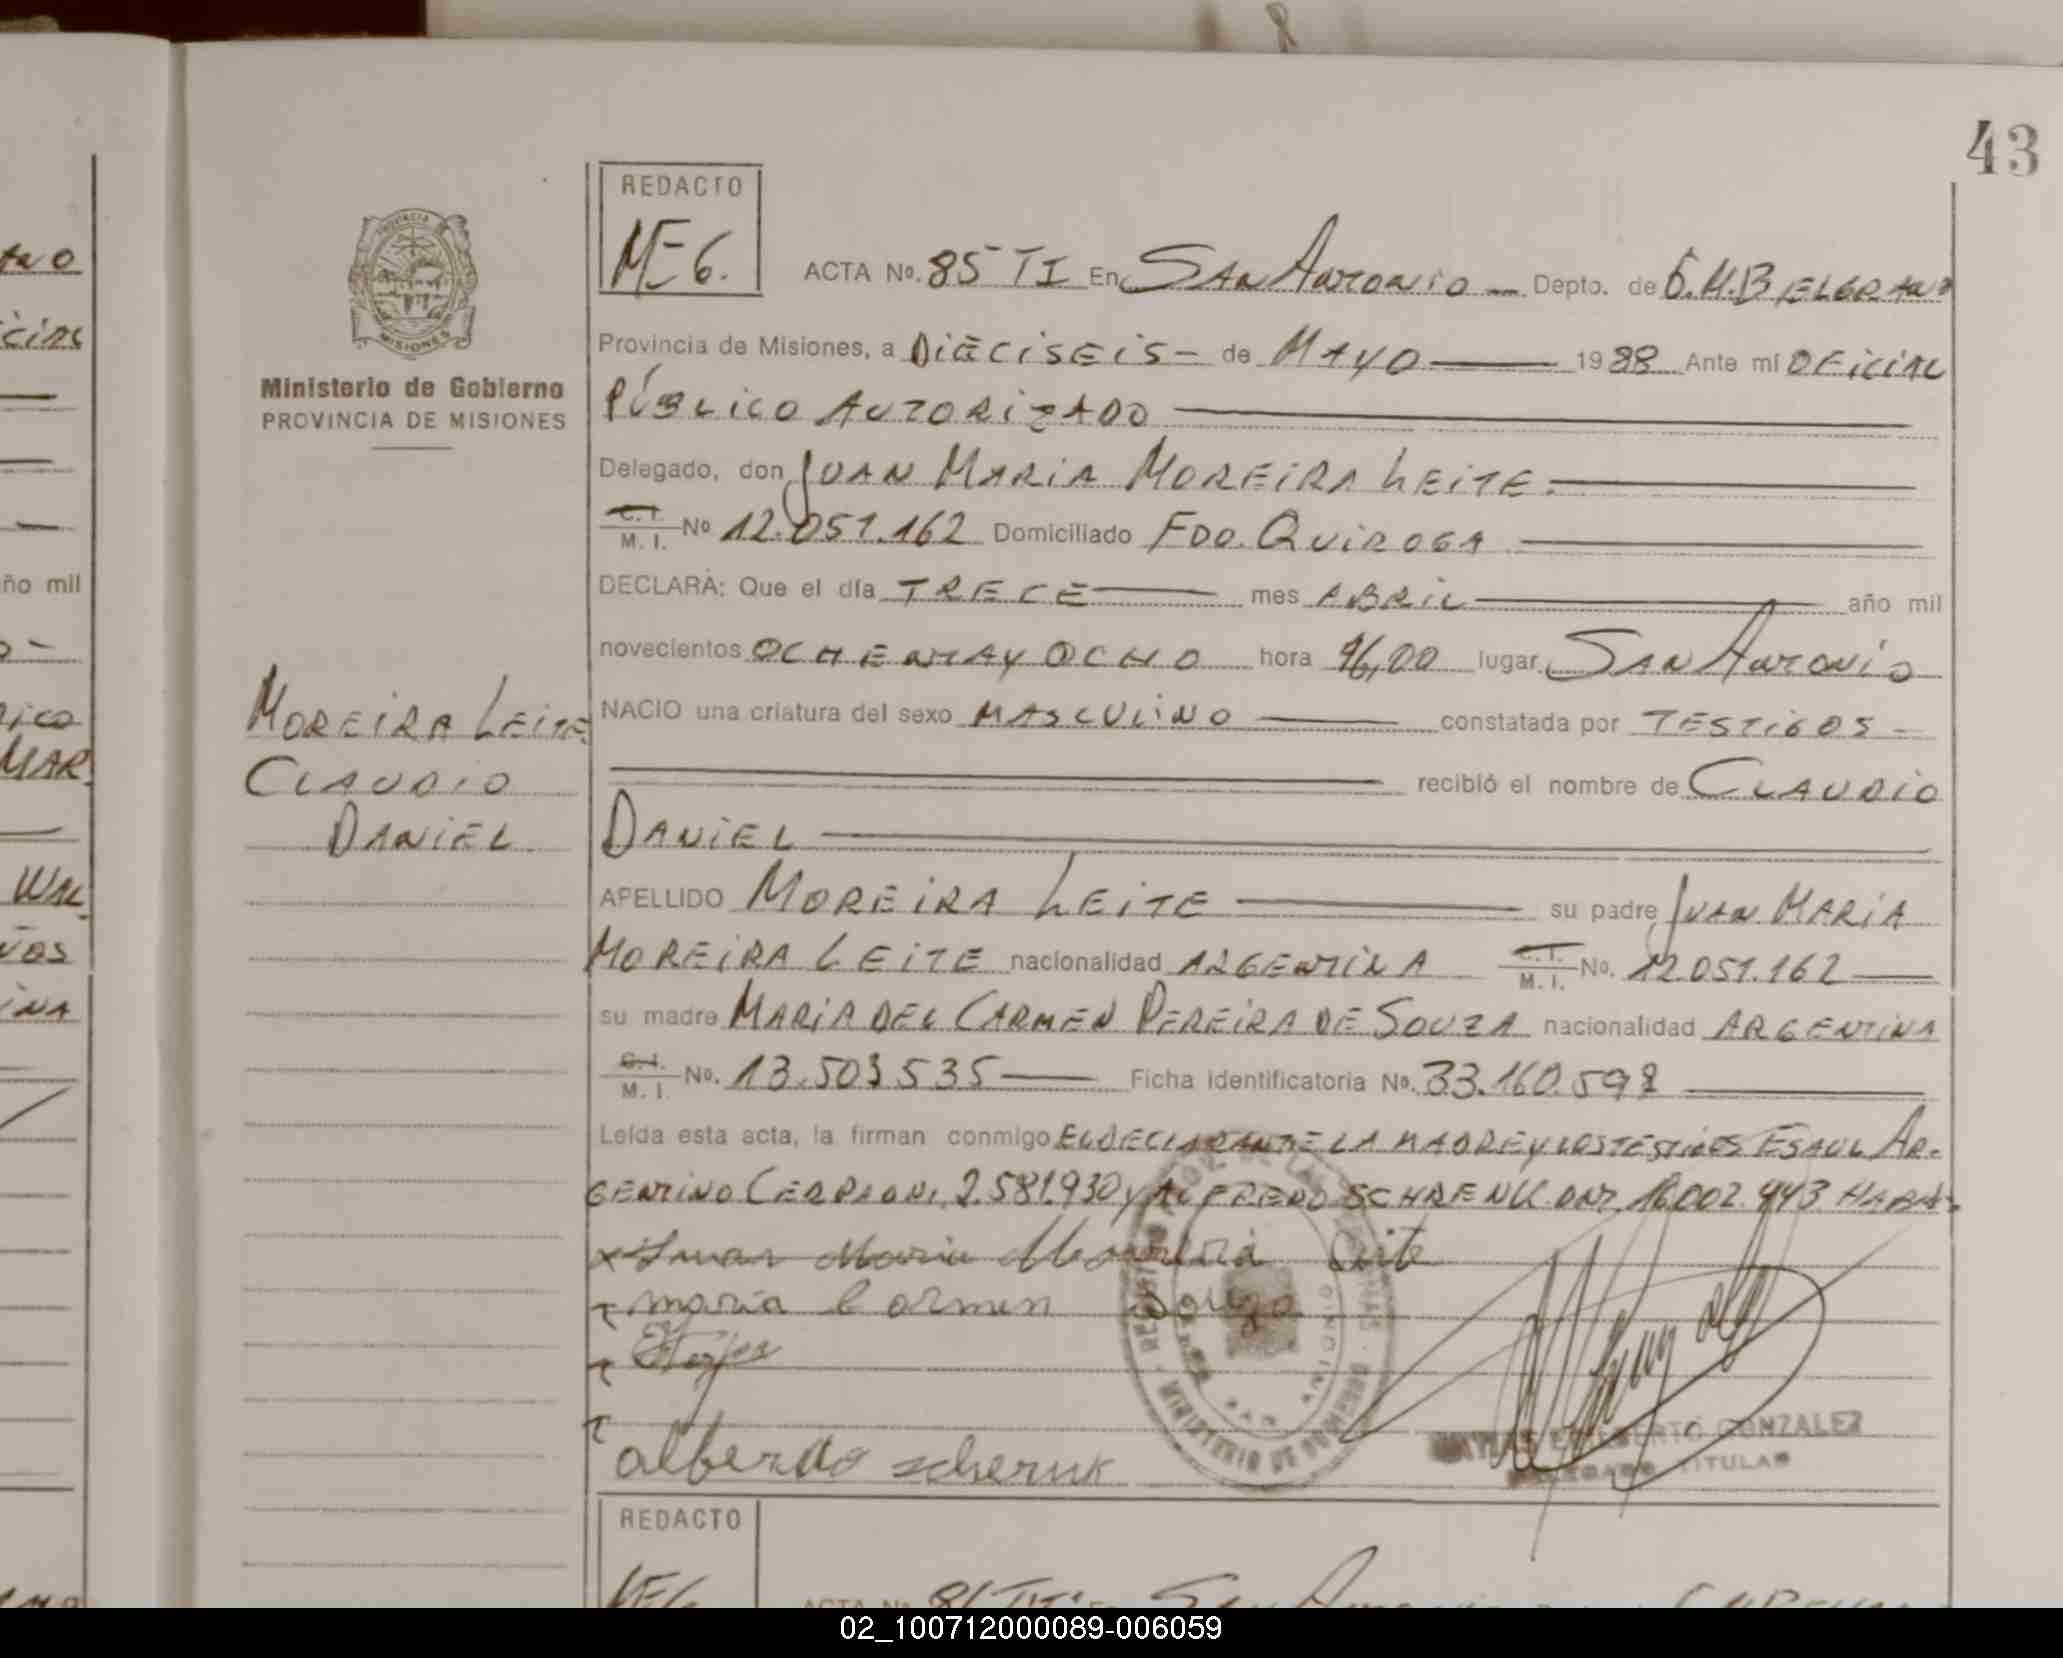 43
REDACTO
MEG.
ACTA No. 85 TI En SAN ANTONIO - Depto. de G.M.BELGRANO
Provincia de Misiones, a DIECISEIS - de MAYO 1988 Ante mí OFICIAL
PÚBLICO AUTORIZADO
Delegado, don JUAN MARIA MOREIRA LEITE.
C.I. / M. I. No 12.051.162 Domiciliado FDO. QUIROGA
DECLARA: Que el día TRECE mes ABRIL año mil
novecientos OCHENTA Y OCHO hora 16,00 lugar SAN ANTONIO
NACIO una criatura del sexo MASCULINO constatada por TESTIGOS -
recibió el nombre de CLAUDIO
DANIEL
APELLIDO MOREIRA LEITE su padre JUAN MARIA
MOREIRA LEITE nacionalidad ARGENTINA C.I. / M. I. No. 12.051.162
su madre MARIA DEL CARMEN PEREIRA DE SOUZA nacionalidad ARGENTINA
C.I. / M. I. No. 13.503535 Ficha Identificatoria No. 33.160.598
Leída esta acta, la firman conmigo EL DECLARANTE LA MADRE Y LOS TESTIGOS ESAUL AR-
GENTINO 2.581.930 y ALFREDO SCHRENK DNI. 16.002.443
Juan Maria Moreira Leite
maria Carmen Souza
alberdo scheruk
GONZALEZ
DELEGADO TITULAR
PROVINCIA DE
MISIONES
Ministerio de Gobierno
PROVINCIA DE MISIONES
MOREIRA LEITE
CLAUDIO
DANIEL
MINISTERIO DE GOBIERNO
REDACTO
MEG
ACTA No. 86
02_100712000089-006059